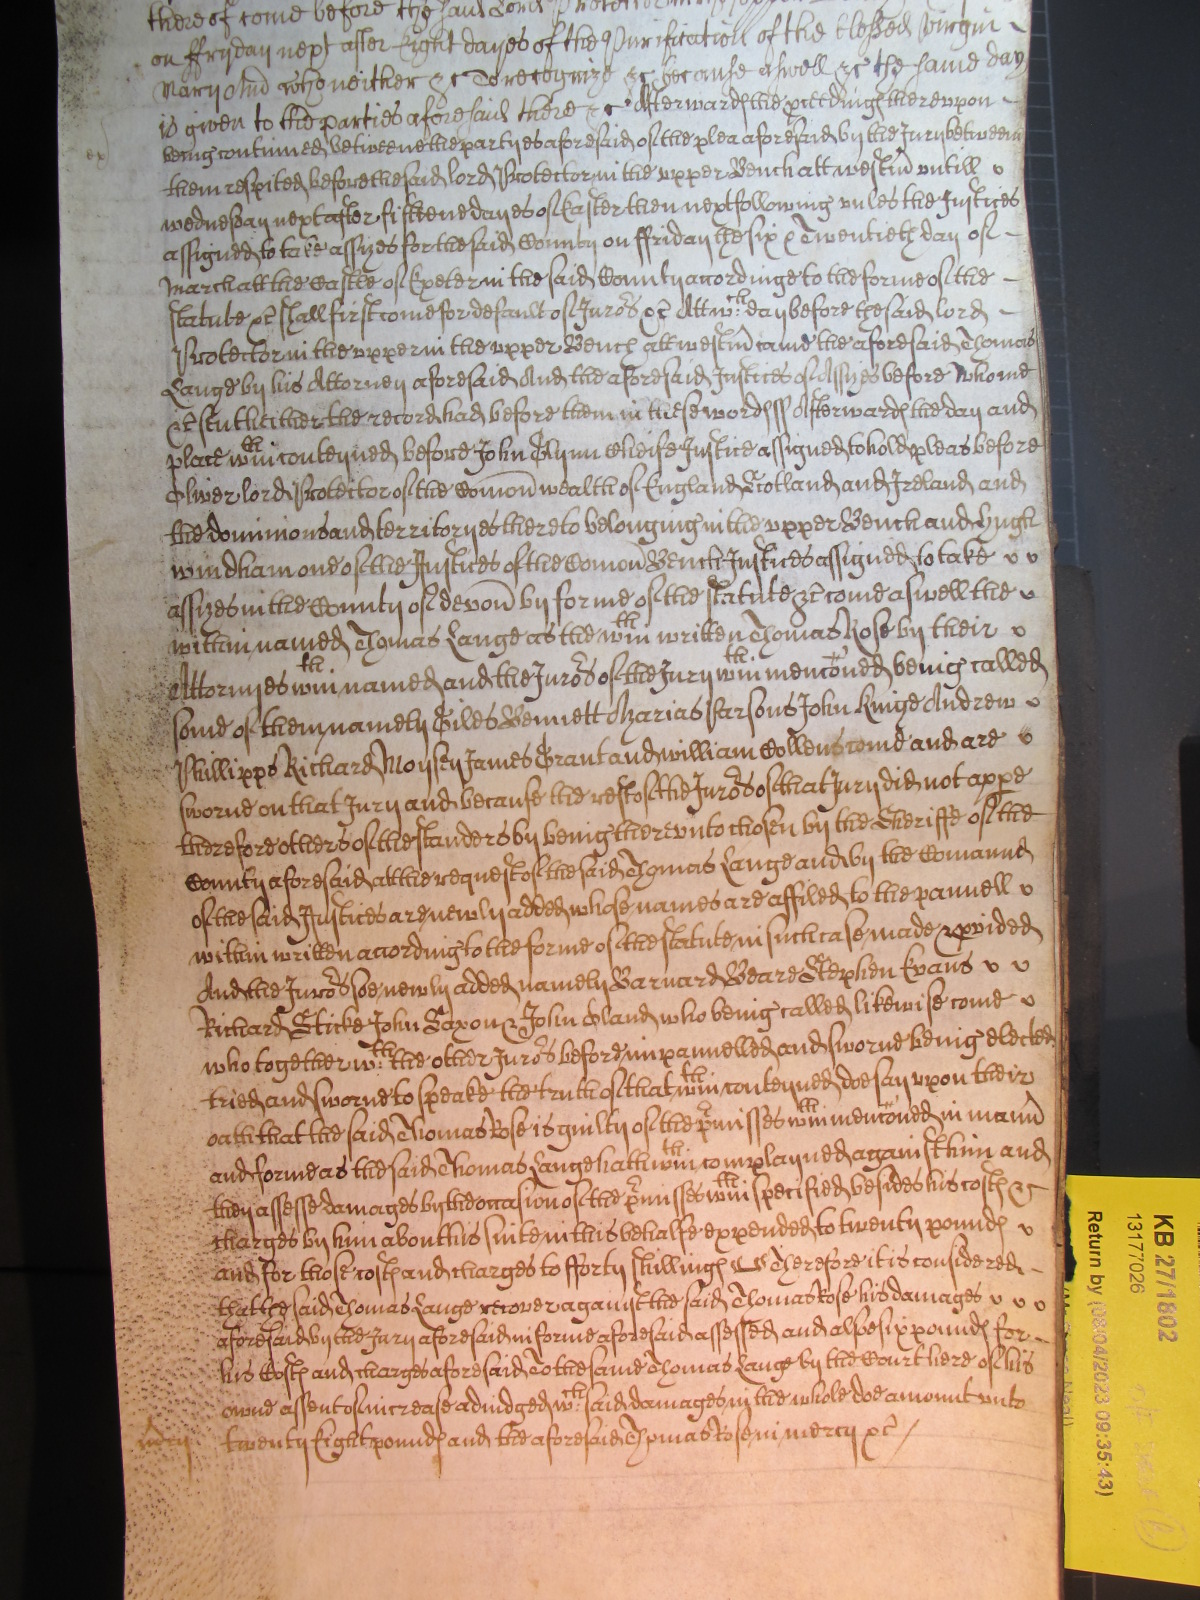 thereof come before the said Lord Protector
on ffryday next after Eight dayes of the Purification of the blessed virgin
Mary And who neither &c To recognize &c because aswell &c the same day
is given to the parties aforesaid there &c Afterwards the pceedings thereupon
being continued betweene the partyes aforesaid of the plea aforesaid by the Jury betweene
them respited before the said lord Protector in the upper Bench att westm̃ untill
wednesday next after fifteene dayes of Easter then next following unles the Justices
assigned to take assizes for the said County on ffriday the six & Twentieth day of
March att the Castle of Exeter in the said County accordinge to the forme of the
statute &c shall first come for default of Juro.rs &c Att wch day before the said lord
Protector in the upper in the upper Bench att westm̃ came the aforesaid Thomas
Lange by his Attorney aforesaid And the aforesaid Justices of Assizes before whome
&c sent hither the record had before them in these words ss Afterwards the day and
place wthin conteyned before John Glynn Cheife Justice assigned to hold pleas before
Oliver lord Protector of the Com̃on wealth of England Scotland and Ireland and
the dominions and territoryes thereto belonging in the upper Bench and Hugh
windham one of the Justices of the Com̃on Bench Justices assigned to take
assizes in the County of devoñ by forme of the statute &c come aswell the
within named Thomas Lange as the wthin written Thomas Rose by their
Attornyes wthin named and the Juro.rs of the Jury wthin menc̃oned being called
some of them namely Giles Bennett Azarias Parsons John Kinge Andrew
Phillipps Richard Moysey James Grant and william Collens come and are
sworne on that Jury and because the rest of the Juro.rs of that Jury did not appe
therefore others of the standers by being thereunto chosen by the Sheriffe of the
County aforesaid att the request of the said Thomas Lange and by the Comannd
of the said Justices are newly added whose names are affiled to the pannell
within written according to the forme of the statute in such case made & pvided
And the Juro.rs soe newly added namely Barnard Beare Stephen Evans
Richard Sticke John Saxon & John Gland who being called likewise come
who together wth the other Juro.rs before impannelled and sworne being elected
tried and sworne to speake the truth of that wthin conteyned doe say upon their
oath that the said Thomas Rose is guilty of the p̃misses wthin menc̃oned in mann̄
and forme as the said Thomas Lange hath wthin complayned against him and
they assesse damages by the occasion of the p̃misses wthin specified besides his costs &
charges by him about his suite in this behalfe expended to twenty pounds
and for those costs and charges to fforty shillings Therefore it is considered
that the said Thomas Lange recover against the said Thomas Rose his damages
aforesaid by the Jury aforesaid in forme aforesaid assessed and alsoe six pounds for
his Costs and charges aforesaid To the same Thomas Lange by the Court here of his
owne assent of increase adiudged wch said damages in the whole doe amount unto
m̃cy twenty Eight pounds and the aforesaid Thomas Rose in mercy &c
KB 27/1802
13177026
Return by (08/04/2023 09:35:43)